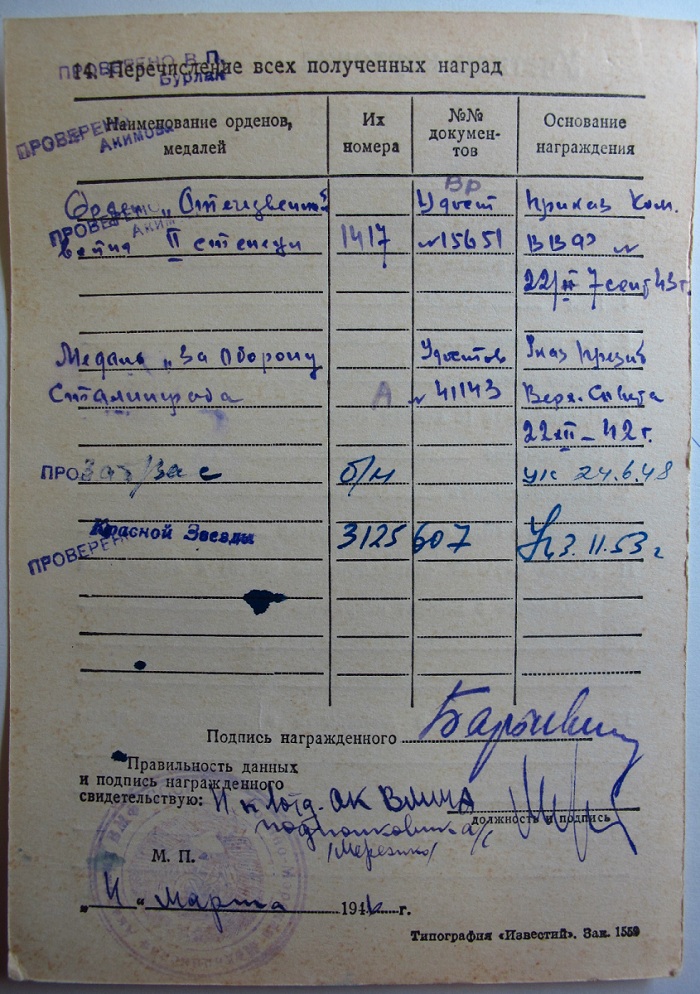 ПРОВЕРЕНО В.П.
Бурлак
14. Перечисление всех полученных наград
ПРОВЕРЕНО
Акимова
Наименование орденов, медалей
Их номера
№№ документов
Основание награждения
Вр
Орден „Отечествен.
Удост
Приказ Ком.
ПРОВЕРЕНО
Аким
война II степени
1417
№15651
ВВФ №
22/п 7 сент 43 г.
Медаль „За Оборону
Удостов
Указ Презид
Сталинграда
А
№ 41143
Верх. Совета
22 XII - 42 г.
ПРО
б/н
ук 24.6.48
Красной Звезды
3125607
Ук 3.11.53 г
ПРОВЕРЕНО
Подпись награжденного
Правильность данных
и подпись награжденного
свидетельствую:
ОК ВМИА
должность и подпись
подполковник а/с
М. П.
„ 11 " марта 194 г.
Типография «Известий». Зак. 1559